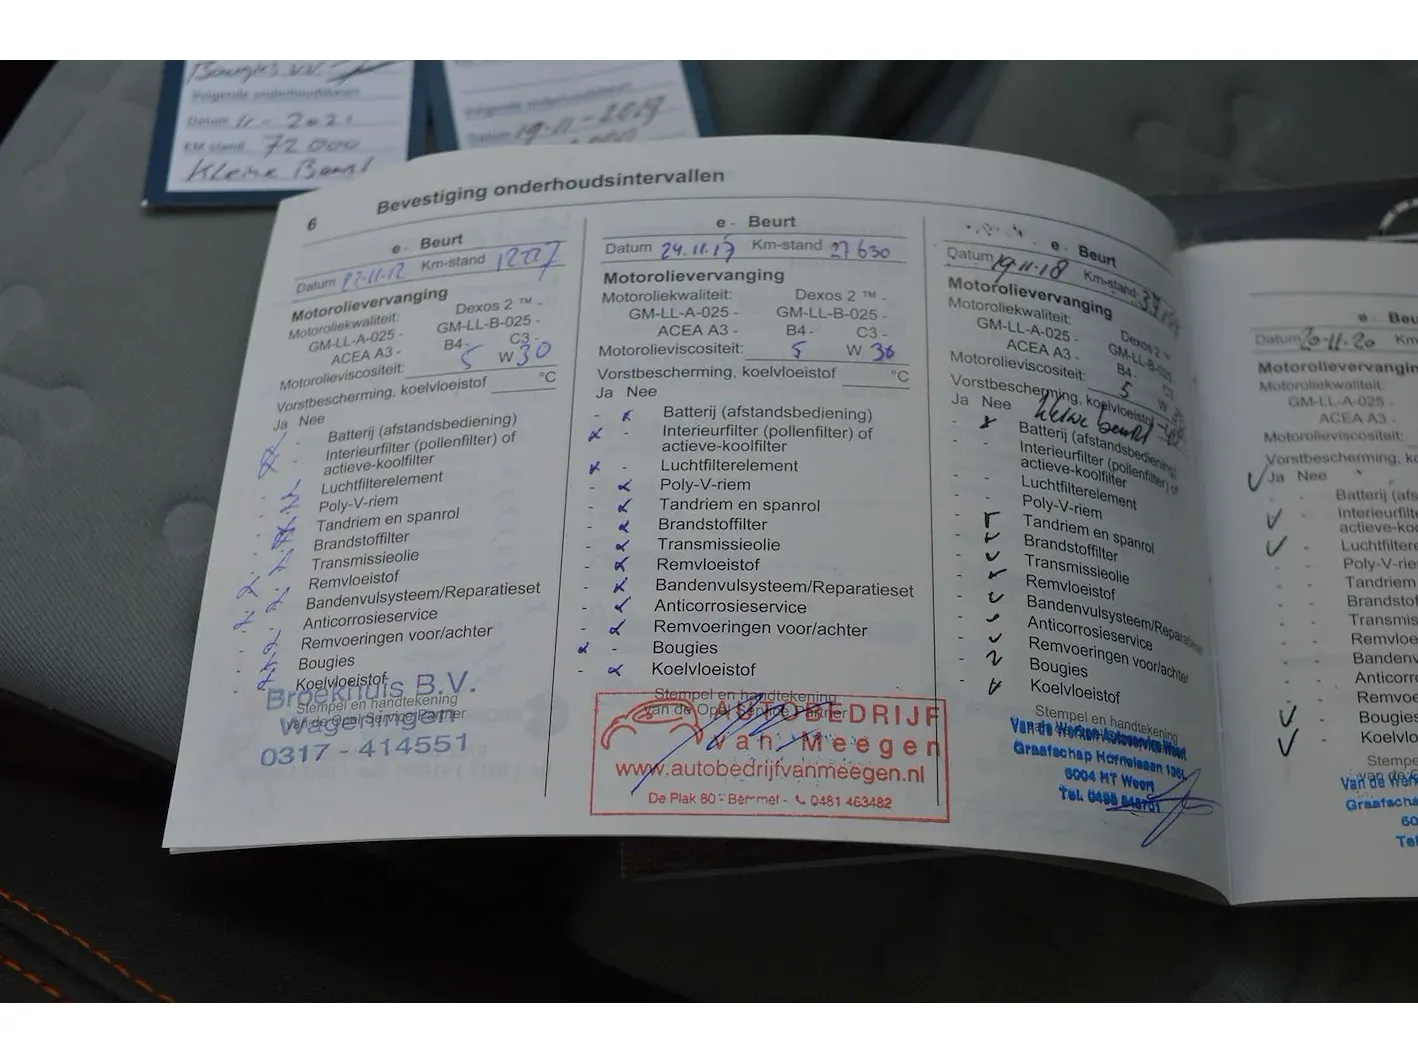 Bougies V.V.
Volgende onderhoudsbeurt
Datum 11 - 2021
KM stand 72 000
Kleine Beurt
Volgende onderhoudsbeurt
Datum 19-11-2019
6 Bevestiging onderhoudsintervallen
e - Beurt
Datum Km-stand
Motorolievervanging
Motoroliekwaliteit: Dexos 2 ™ -
GM-LL-A-025 - GM-LL-B-025 -
ACEA A3 - B4 - C3 -
Motorolieviscositeit: 5 W 30
Vorstbescherming, koelvloeistof °C
Ja Nee
Batterij (afstandsbediening)
Interieurfilter (pollenfilter) of
actieve-koolfilter
Luchtfilterelement
Poly-V-riem
Tandriem en spanrol
Brandstoffilter
Transmissieolie
Remvloeistof
Bandenvulsysteem/Reparatieset
Anticorrosieservice
Remvoeringen voor/achter
Bougies
Koelvloeistof
Stempel en handtekening
van de Opel Service Partner
Broekhuis B.V.
Wageningen
0317 - 414551
e - Beurt
Datum 24.11.17 Km-stand 27630
Motorolievervanging
Motoroliekwaliteit: Dexos 2 ™ -
GM-LL-A-025 - GM-LL-B-025 -
ACEA A3 - B4 - C3 -
Motorolieviscositeit: 5 W 30
Vorstbescherming, koelvloeistof °C
Ja Nee
Batterij (afstandsbediening)
Interieurfilter (pollenfilter) of
actieve-koolfilter
Luchtfilterelement
Poly-V-riem
Tandriem en spanrol
Brandstoffilter
Transmissieolie
Remvloeistof
Bandenvulsysteem/Reparatieset
Anticorrosieservice
Remvoeringen voor/achter
Bougies
Koelvloeistof
Stempel en handtekening
van de Opel Service Partner
AUTOBEDRIJF
van Meegen
www.autobedrijfvanmeegen.nl
De Plak 80 - Bemmel - 0481 463482
e - Beurt
Datum 19-11-18 Km-stand
Motorolievervanging
Motoroliekwaliteit: Dexos 2
GM-LL-A-025 - GM-LL-B-025
ACEA A3 - B4 -
Motorolieviscositeit: 5 W
Vorstbescherming, koelvloeistof
Ja Nee Kleine beurt
Batterij (afstandsbediening)
Interieurfilter (pollenfilter) of
actieve-koolfilter
Luchtfilterelement
Poly-V-riem
Tandriem en spanrol
Brandstoffilter
Transmissieolie
Remvloeistof
Bandenvulsysteem/Reparatieset
Anticorrosieservice
Remvoeringen voor/achter
Bougies
Koelvloeistof
Stempel en handtekening
van de Opel Service Partner
Van de Werken Autoservice Weert
Graafschap Hornelaan 136
6004 HT Weert
Tel. 0495
e - Beurt
Datum 20-11-20 Km
Motorolievervangin
Motoroliekwaliteit:
GM-LL-A-025 -
ACEA A3 -
Motorolieviscositeit:
Vorstbescherming, ko
Ja Nee
Batterij (afs
Interieurfilte
actieve-koo
Luchtfiltere
Poly-V-rie
Tandriem
Brandstof
Transmis
Remvloe
Banden
Anticorr
Remvoe
Bougies
Koelvlo
Stempe
van de O
Van de Werk
Graafscha
60
Tel